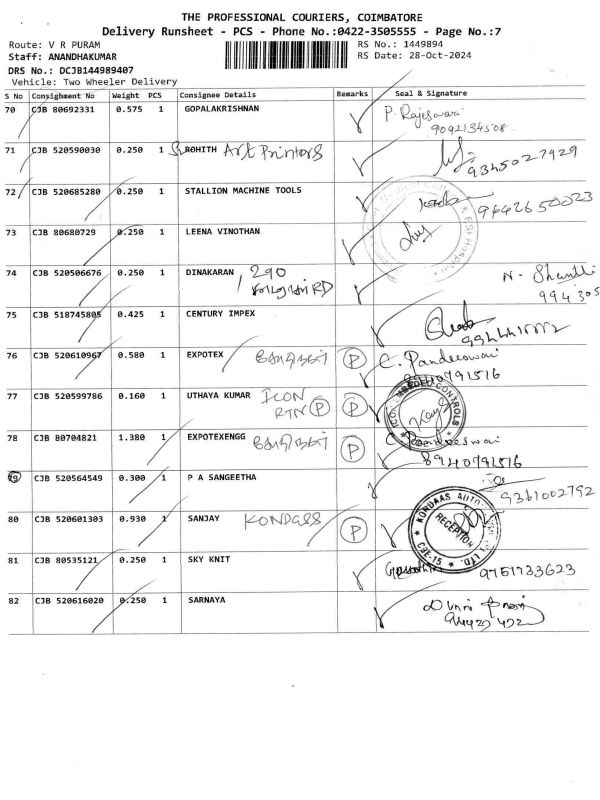 THE PROFESSIONAL COURIERS, COIMBATORE
Delivery Runsheet - PCS - Phone No.:0422-3505555 - Page No.:7
Route: V R PURAM
RS No.: 1449894
Staff: ANANDHAKUMAR
RS Date: 28-Oct-2024
DRS No.: DCJB144989407
Vehicle: Two Wheeler Delivery
S No Consignment No Weight PCS Consignee Details Remarks Seal & Signature
70 CJB 80692331 0.575 1 GOPALAKRISHNAN P. Rajeswari
9092134508
71 CJB 520590030 0.250 1 ROHITH Art Printors 9345027929
72 CJB 520685280 0.250 1 STALLION MACHINE TOOLS 9642650023
73 CJB 80680729 0.250 1 LEENA VINOTHAN
& ESI Hospital
74 CJB 520506676 0.250 1 DINAKARAN, 290 RD N. Shanthi
994305
75 CJB 518745805 0.425 1 CENTURY IMPEX
76 CJB 520610967 0.580 1 EXPOTEX P C. Pandeeswari
8940791516
77 CJB 520599786 0.160 1 UTHAYA KUMAR ICON
RTN P P CONTROLS
78 CJB 80704821 1.380 1 EXPOTEXENGG P C Pandeeswari
8940791516
79 CJB 520564549 0.300 1 P A SANGEETHA 9361002792
80 CJB 520601303 0.930 1 SANJAY KONDASS P
KONDAAS AUTO LTD. CBE-15
RECEPTION
81 CJB 80535121 0.250 1 SKY KNIT 9751733623
82 CJB 520616020 0.250 1 SARNAYA